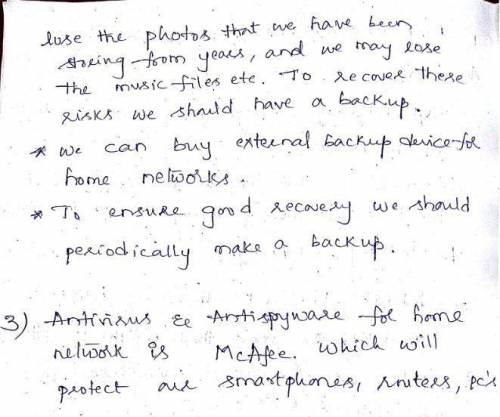 lose the photos that we have been
storing from years, and we may lose
the music files etc. To recover these
risks we should have a backup.
* we can buy external backup device for
home networks.
* To ensure good recovery we should
periodically make a backup.
3) Antivirus & Antispyware for home
network is McAfee. which will
protect our smartphones, routers, pc's